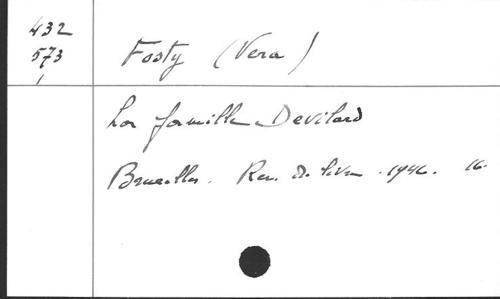 432
573
Fosty (Vera)
La famille Devilard
Bruxelles. Ren. du Livre. 1946. 16.